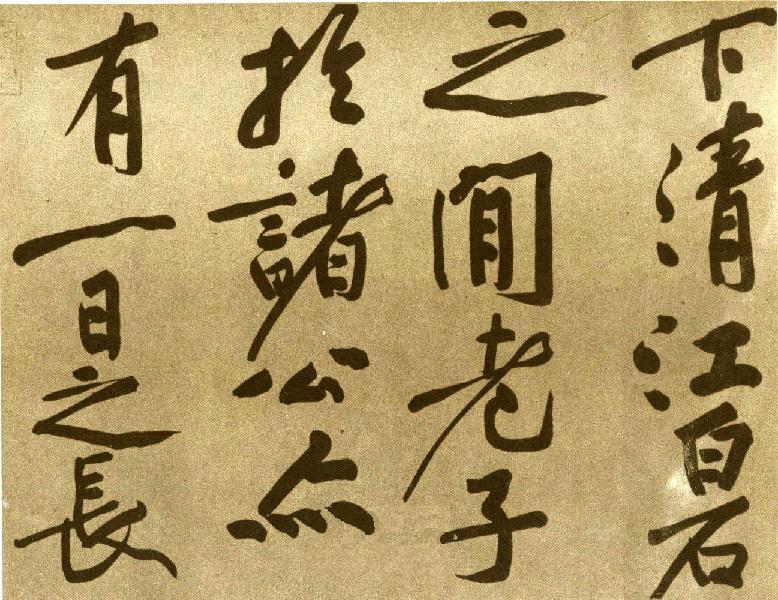 下清江白石
之間老子
於諸公亦
有一日之長